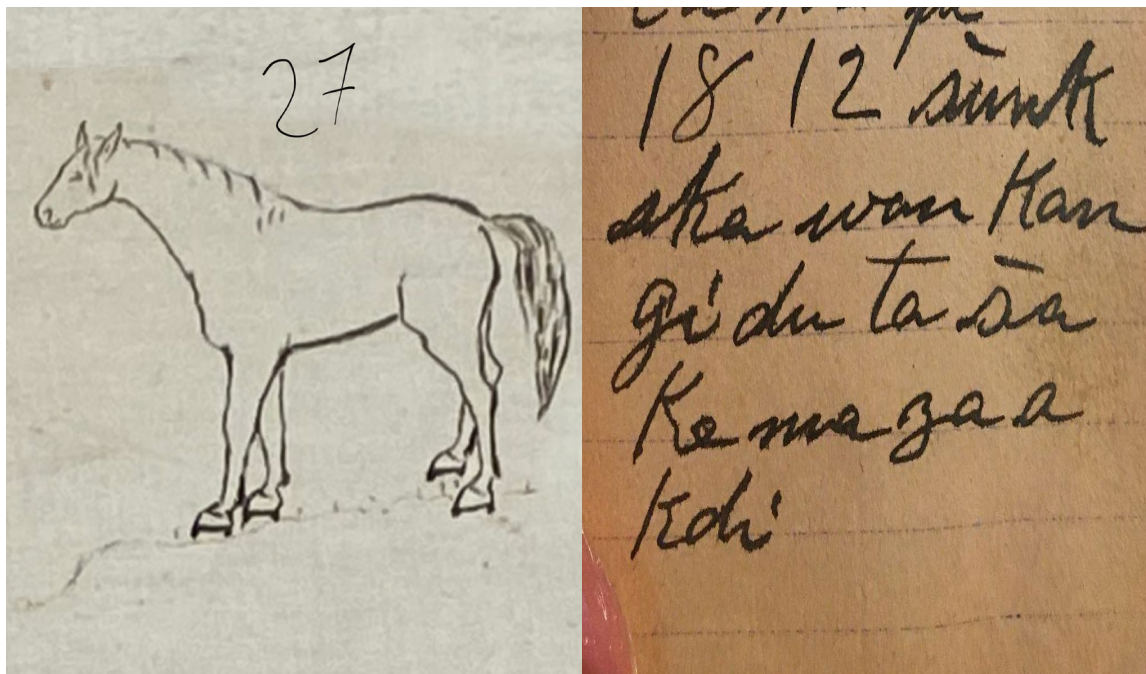 27
1812 šunk
ska wan Kan
gi du ta ša
Ke ma za a
Kdi